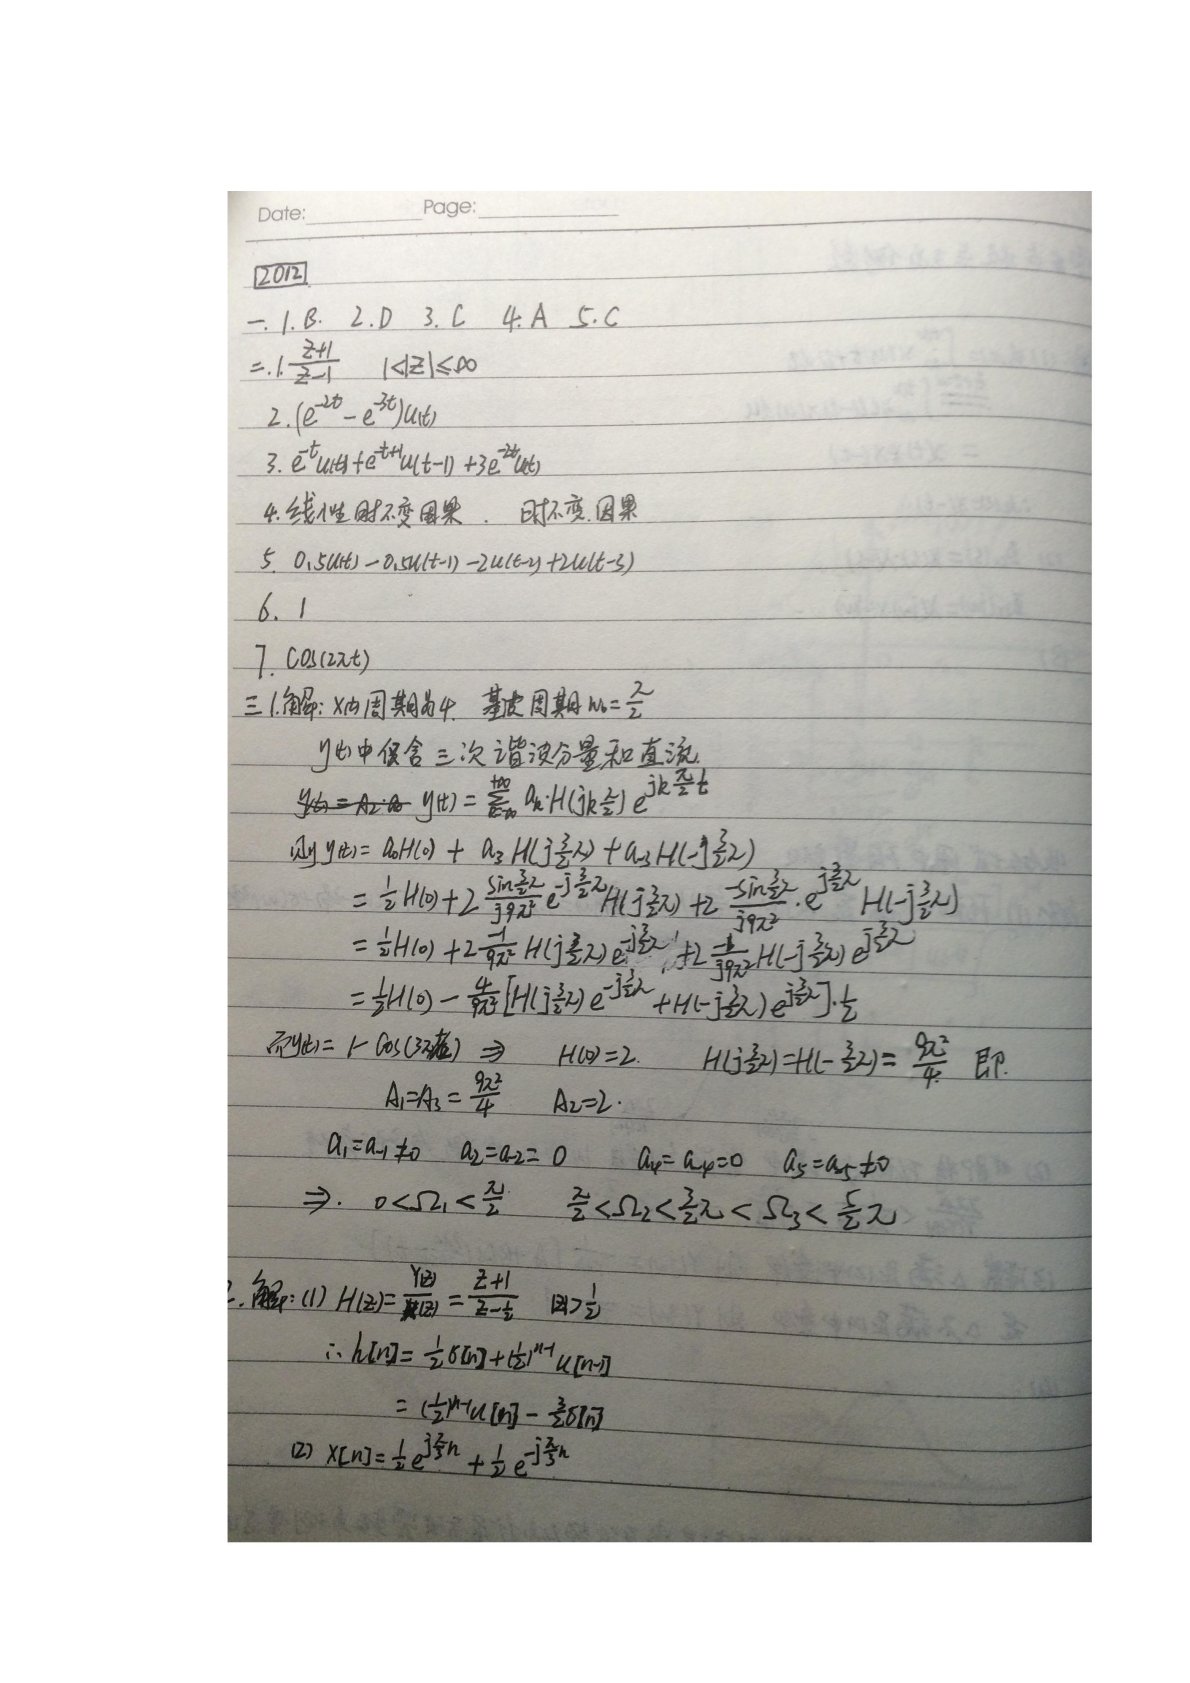 Date: Page:
2012
一. 1. B. 2. D 3. C 4. A 5. C
二. 1. \frac{z+1}{z-1} 1<|z|≤∞
2. (e^{-2t} - e^{-3t})u(t)
3. e^{-t}u(t)+e^{-t+1}u(t-1)+3e^{-2t}u(t)
4. 线性时不变因果. 时不变.因果
5. 0.5u(t)-0.5u(t-1)-2u(t-2)+2u(t-3)
6. 1
7. cos(2πt)
三 1.解: x(t)周期为4. 基波周期w₀=\frac{π}{2}
y(t)中仅含三次谐波分量和直流.
y(t)=\sum_{k=-∞}^{+∞} a_k·H(jk\frac{π}{2})e^{jk\frac{π}{2}t}
则y(t)=a₀H(0)+a₃H(j\frac{3}{2}π)+a₋₃H(-j\frac{3}{2}π)
=\frac{1}{2}H(0)+2\frac{sin\frac{3}{2}π}{j9π²}e^{-j\frac{3}{2}π}H(j\frac{3}{2}π)+2\frac{-sin\frac{3}{2}π}{j9π²}·e^{j\frac{3}{2}π}H(-j\frac{3}{2}π)
=\frac{1}{2}H(0)+2\frac{-1}{9π²}H(j\frac{3}{2}π)e^{-j\frac{3}{2}π}+2\frac{-1}{j9π²}H(-j\frac{3}{2}π)e^{j\frac{3}{2}π}
=\frac{1}{2}H(0)-\frac{4}{9π²}[H(j\frac{3}{2}π)e^{-j\frac{3}{2}π}+H(-j\frac{3}{2}π)e^{j\frac{3}{2}π}]·\frac{1}{2}
而y(t)=1-cos(3π) ⇒ H(0)=2. H(j\frac{3}{2}π)=H(-\frac{3}{2}π)=\frac{9π²}{4} 即.
A₁=A₃=\frac{9π²}{4} A₂=2.
a₁=a₋₁≠0 a₂=a₋₂=0 a₄=a₋₄=0 a₅=a₋₅≠0
⇒. 0<Ω₁<\frac{π}{2} \frac{π}{2}<Ω₂<\frac{3}{2}π<Ω₃<\frac{5}{2}π
2. 解:(1) H(z)=\frac{Y(z)}{X(z)}=\frac{z+1}{z-\frac{1}{2}} |z|>\frac{1}{2}
∴h[n]=\frac{1}{2}δ[n]+(\frac{1}{2})^{n-1}u[n-1]
=(\frac{1}{2})^{n-1}u[n]-\frac{3}{2}δ[n]
(2) x[n]=\frac{1}{2}e^{j\frac{π}{3}n}+\frac{1}{2}e^{-j\frac{π}{3}n}